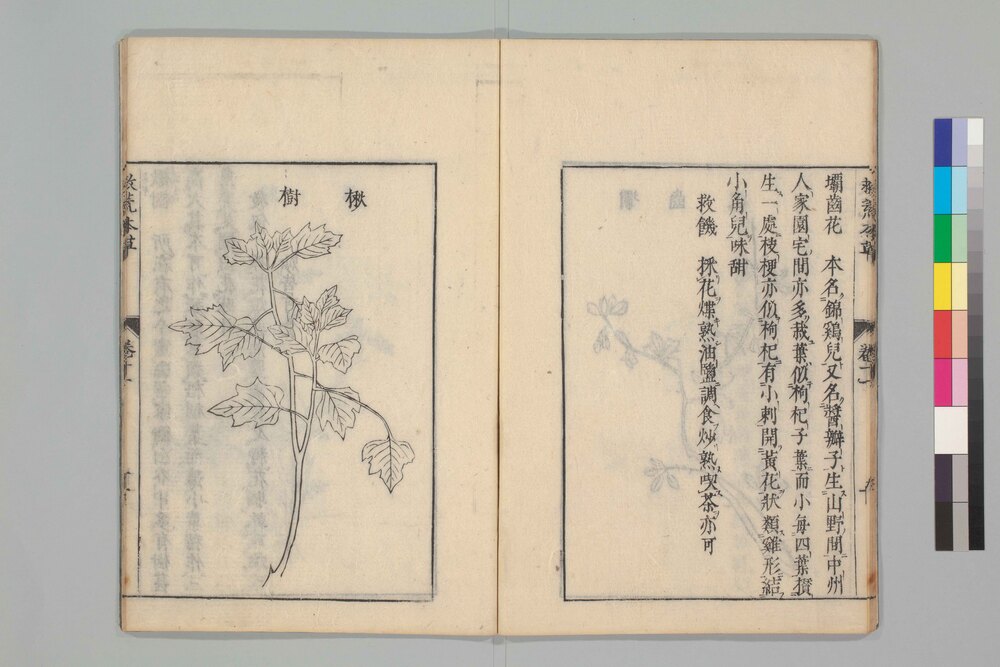 壩齒花　本名錦鷄兒又名醬瓣子生山野間中州
人家園宅間亦多栽葉似枸杞子葉而小每四葉攅
生一處枝梗亦似枸杞有小刺開黃花狀類雞形結
小角兒味甜
救饑　採花煠熟油鹽調食炒熟喫茶亦可
楸樹
救荒本草
卷十一